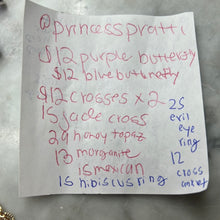 @princesspratti
$12 purple butterfly
$12 blue butterfly
$12 crosses x 2
15 jade cross
29 honey topaz
13 morganite
15 mexican
15 hibiscus ring
25
evil
eye
ring
12
cross